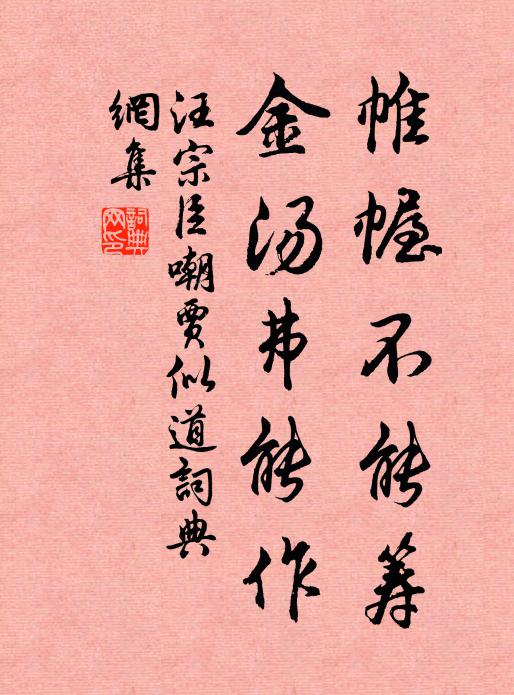 帷幄不能筹
金汤弗能作
汪宗臣嘲賈似道詞典
網集
詞典
网印